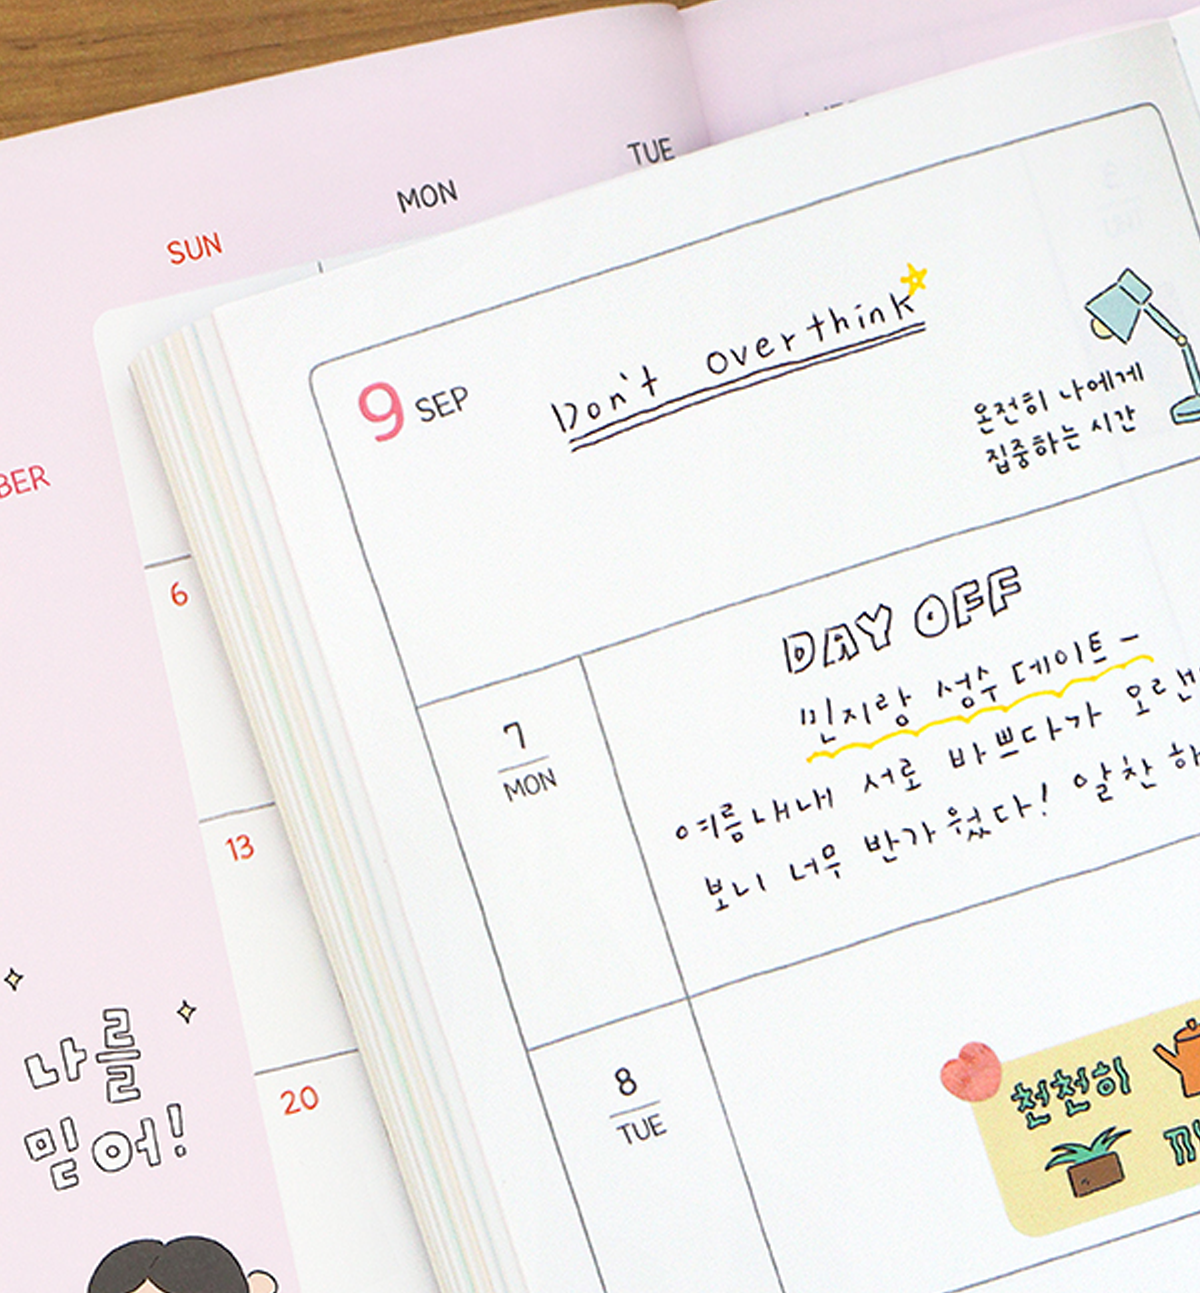 SUN
MON
TUE
BER
6
13
20
나를
믿어!
9 SEP
Don't overthink
온전히 나에게
집중하는 시간
7
MON
DAY OFF
민지랑 성수 데이트 -
여름내내 서로 바쁘다가
보니 너무 반가웠다! 알찬
8
TUE
천천히